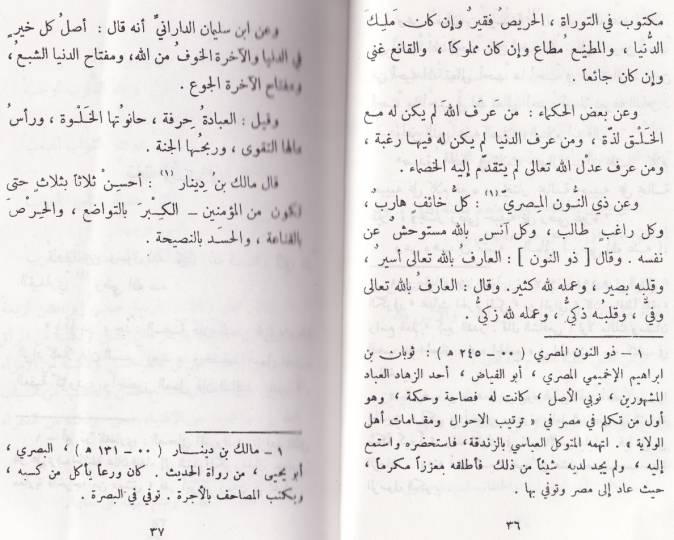 مكتوب في التوراة ، الحريصُ فقيرٌ وإن كان مَلِيكَ
الدُّنيا ، والمطيعُ مُطاع وإن كان مملوكاً ، والقانع غني
وإن كان جائعاً .
وعن بعض الحكماء : من عرف اللهَ لم يكن له مع
الخَلْق لذّة ، ومن عرف الدنيا لم يكن له فيها رغبة ،
ومن عرف عدْل الله تعالى لم يتقدم إليه الخصماء .
وعن ذي النُّون المصري (١) : كلُّ خائف هاربٌ ،
وكل راغبٍ طالب ، وكل آنسٍ بالله مستوحشٌ عن
نفسه . وقال [ ذو النون ] : العارفُ بالله تعالى أسيرٌ ،
وقلبه بصير ، وعمله لله كثير . وقال : العارف بالله تعالى
وفيٌّ ، وقلبُه ذكيٌّ ، وعمله لله زكيٌّ .
١ – ذو النون المصري ( ٠٠ – ٢٤٥ ه ) : ثوبان بن
ابراهيم الإخميمي المصري ، أبو الفياض ، أحد الزهاد العباد
المشهورين ، نوبي الأصل ، كانت له فصاحة وحكمة ، وهو
أول من تكلم في مصر في « ترتيب الاحوال ومقامات أهل
الولاية » . اتهمه المتوكل العباسي بالزندقة، فاستحضره واستمع
إليه ، ولم يجد لديه شيئاً من ذلك فأطلقه معززاً مكرماً ،
حيث عاد إلى مصر وتوفي بها .
٣٦
وعن ابن سليمان الدارانيّ أنه قال : أصلُ كل خيرٍ
في الدنيا والآخرة الخوفُ من الله، ومفتاح الدنيا الشبعُ ،
ومفتاح الآخرة الجوع .
وقيل : العبادةُ حِرفة ، حانوتُها الخَلْوة ، ورأسُ
مالها التقوى ، وربحُها الجنة .
قال مالك بنُ دِينار (١) : أحسِنْ ثلاثاً بثلاثٍ حتى
تكون من المؤمنين – الكِبْرَ بالتواضع ، والحِرْصَ
بالقناعة ، والحسَد بالنصيحة .
١ – مالك بن دينار ( ٠٠ – ١٣١ ه ) ، البصري ،
أبو يحيى ، من رواة الحديث . كان ورعاً يأكل من كسبه ،
ويكتب المصاحف بالأجرة . توفي في البصرة .
٣٧